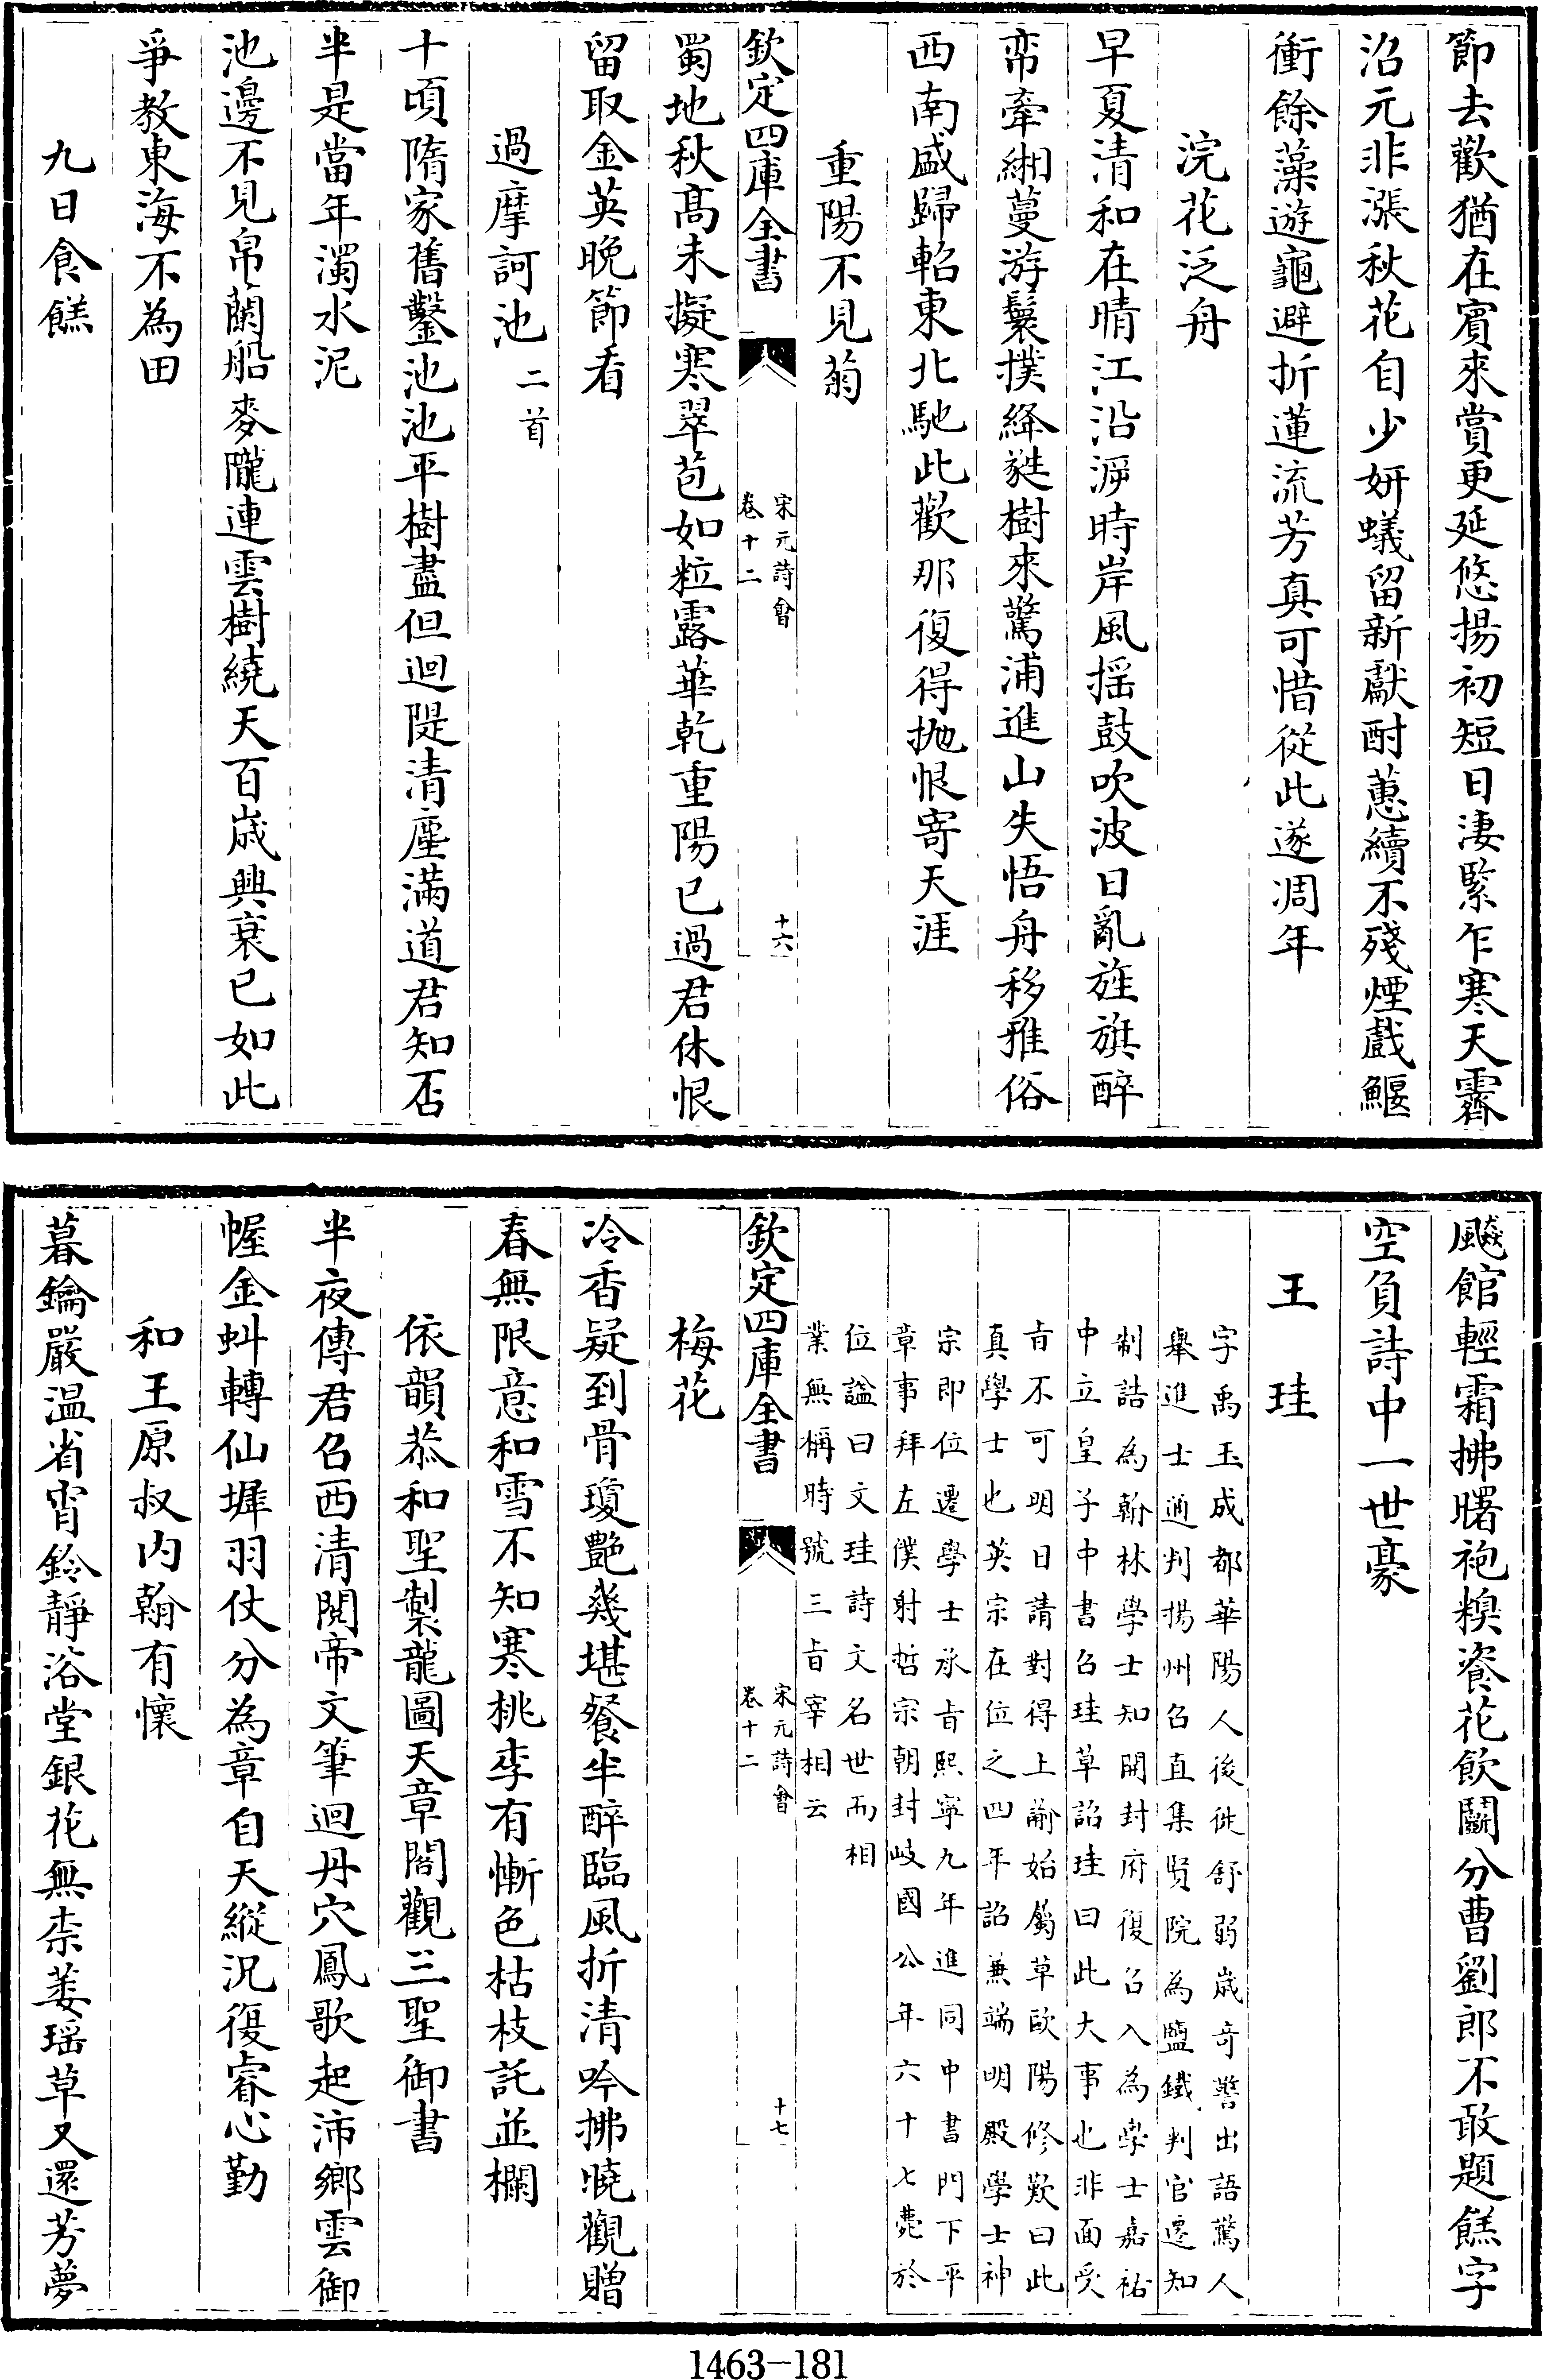 節去歡猶在賓來賞更延悠揚初短日淒緊乍寒天霽
沼元非漲秋花自少妍蟻留新獻酎蕙續不殘煙戲鰋
衝餘藻遊龜避折蓮流芳真可惜從此遂凋年
浣花泛舟
早夏清和在晴江沿泝時岸風揺鼓吹波日亂旌旗醉
帟牽緗蔓游鬟撲絳蕤樹來驚浦進山失悟舟移雅俗
西南盛歸軺東北馳此歡那復得抛恨寄天涯
重陽不見菊
欽定四庫全書
宋元詩會
卷十二
十六
蜀地秋髙未擬寒翠苞如粒露華乾重陽已過君休恨
留取金英晩節看
過摩訶池二首
十頃隋家舊鑿池池平樹盡但迴隄清塵滿道君知否
半是當年濁水泥
池邊不見帛蘭船麥隴連雲樹繞天百歲興衰已如此
爭教東海不為田
九日食餻
飈館輕霜拂曙袍糗餈花飲鬭分曹劉郎不敢題餻字
空負詩中一世豪
王珪
字禹玉成都華陽人後徙舒弱歲竒警出語驚人
舉進士通判揚州召直集賢院為鹽鐵判官遷知
制誥為翰林學士知開封府復召入為學士嘉祐
中立皇子中書召珪草詔珪曰此大事也非面受
㫖不可明日請對得上諭始屬草歐陽修歎曰此
真學士也英宗在位之四年詔兼端明殿學士神
宗即位遷學士承㫖熙寧九年進同中書門下平
章事拜左僕射哲宗朝封岐國公年六十七薨於
位諡曰文珪詩文名世而相
業無稱時號三㫖宰相云
欽定四庫全書
宋元詩會
卷十二
十七
梅花
冷香疑到骨瓊艷幾堪餐半醉臨風折清吟拂曉觀贈
春無限意和雪不知寒桃李有慚色枯枝託並欄
依韻恭和聖製龍圖天章閣觀三聖御書
半夜傳君召西清閱帝文筆迴丹穴鳳歌起沛鄉雲御
幄金虯轉仙墀羽仗分為章自天縱況復睿心勤
和王原叔内翰有懷
暮鑰嚴温省宵鈴靜浴堂銀花無柰萎瑶草又還芳夢
1463-181